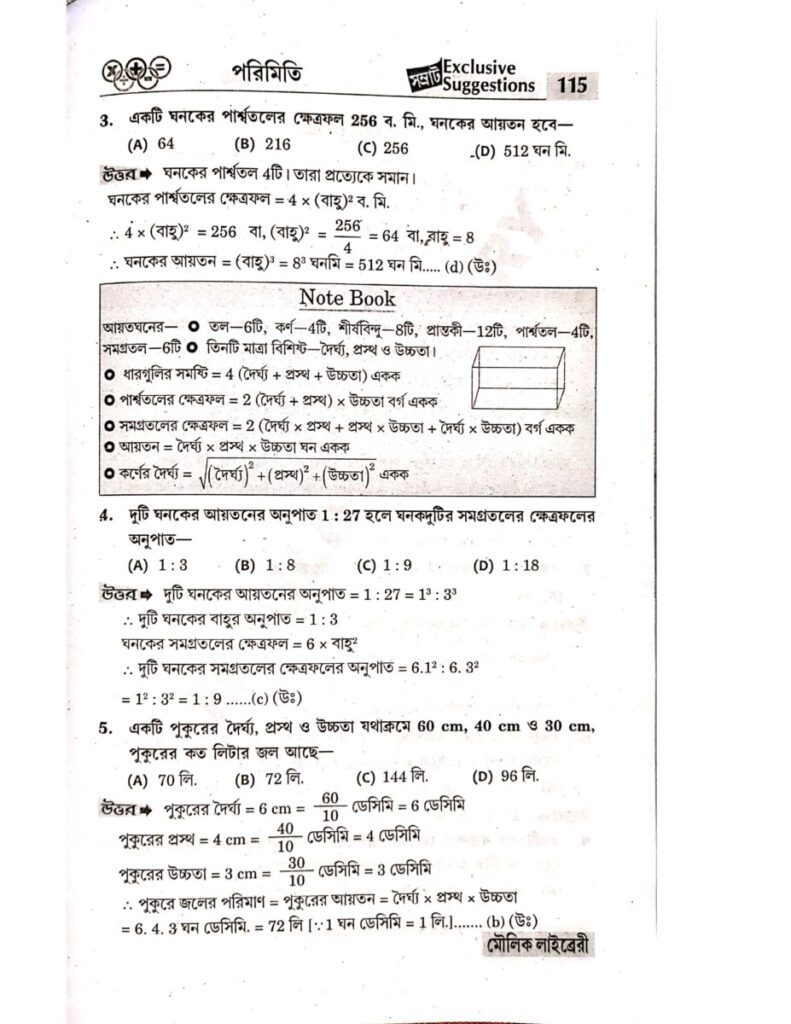 পরিমিতি
সম্রাট Exclusive Suggestions 115
3. একটি ঘনকের পার্শ্বতলের ক্ষেত্রফল 256 ব. মি., ঘনকের আয়তন হবে—
(A) 64 (B) 216 (C) 256 (D) 512 ঘন মি.
উত্তর ➡ ঘনকের পার্শ্বতল 4টি। তারা প্রত্যেকে সমান।
ঘনকের পার্শ্বতলের ক্ষেত্রফল = 4 × (বাহু)² ব. মি.
∴ 4 × (বাহু)² = 256 বা, (বাহু)² = 256/4 = 64 বা, বাহু = 8
∴ ঘনকের আয়তন = (বাহু)³ = 8³ ঘনমি = 512 ঘন মি..... (d) (উঃ)
Note Book
আয়তঘনের— ● তল—6টি, কর্ণ—4টি, শীর্ষবিন্দু—8টি, প্রান্তকী—12টি, পার্শ্বতল—4টি,
সমগ্রতল—6টি ● তিনটি মাত্রা বিশিষ্ট—দৈর্ঘ্য, প্রস্থ ও উচ্চতা।
● ধারগুলির সমষ্টি = 4 (দৈর্ঘ্য + প্রস্থ + উচ্চতা) একক
● পার্শ্বতলের ক্ষেত্রফল = 2 (দৈর্ঘ্য + প্রস্থ) × উচ্চতা বর্গ একক
● সমগ্রতলের ক্ষেত্রফল = 2 (দৈর্ঘ্য × প্রস্থ + প্রস্থ × উচ্চতা + দৈর্ঘ্য × উচ্চতা) বর্গ একক
● আয়তন = দৈর্ঘ্য × প্রস্থ × উচ্চতা ঘন একক
● কর্ণের দৈর্ঘ্য = √((দৈর্ঘ্য)² + (প্রস্থ)² + (উচ্চতা)²) একক
4. দুটি ঘনকের আয়তনের অনুপাত 1 : 27 হলে ঘনকদুটির সমগ্রতলের ক্ষেত্রফলের
অনুপাত—
(A) 1 : 3 (B) 1 : 8 (C) 1 : 9 (D) 1 : 18
উত্তর ➡ দুটি ঘনকের আয়তনের অনুপাত = 1 : 27 = 1³ : 3³
∴ দুটি ঘনকের বাহুর অনুপাত = 1 : 3
ঘনকের সমগ্রতলের ক্ষেত্রফল = 6 × বাহু²
∴ দুটি ঘনকের সমগ্রতলের ক্ষেত্রফলের অনুপাত = 6.1² : 6. 3²
= 1² : 3² = 1 : 9 ......(c) (উঃ)
5. একটি পুকুরের দৈর্ঘ্য, প্রস্থ ও উচ্চতা যথাক্রমে 60 cm, 40 cm ও 30 cm,
পুকুরের কত লিটার জল আছে—
(A) 70 লি. (B) 72 লি. (C) 144 লি. (D) 96 লি.
উত্তর ➡ পুকুরের দৈর্ঘ্য = 6 cm = 60/10 ডেসিমি = 6 ডেসিমি
পুকুরের প্রস্থ = 4 cm = 40/10 ডেসিমি = 4 ডেসিমি
পুকুরের উচ্চতা = 3 cm = 30/10 ডেসিমি = 3 ডেসিমি
∴ পুকুরে জলের পরিমাণ = পুকুরের আয়তন = দৈর্ঘ্য × প্রস্থ × উচ্চতা
= 6. 4. 3 ঘন ডেসিমি. = 72 লি [∵1 ঘন ডেসিমি = 1 লি.]....... (b) (উঃ)
মৌলিক লাইব্রেরী